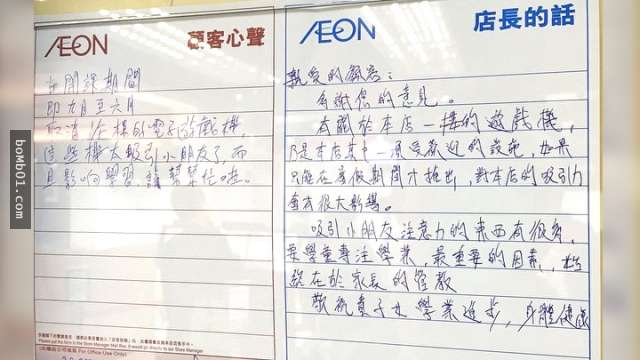 AEON 顧客心聲
在開課期間
即九月至六月
取消在樓的電子遊戲機,
這些機太吸引小朋友了,而
且影响學習,請幫幫忙啦。
For Office Use Only
AEON 店長的話
親愛的顧客:
多謝您的意見。
有關於本店一樓的遊戲機,
乃是本店其中一項受歡迎的設施,如果
只能在暑假期間才推出,對本店的吸引力
會有很大影響。
吸引小朋友注意力的東西有很多,
要學童專注學業,最重要的因素,
在於家長的管教
敬祝貴子女學業進步,身體健康
bomb01.com